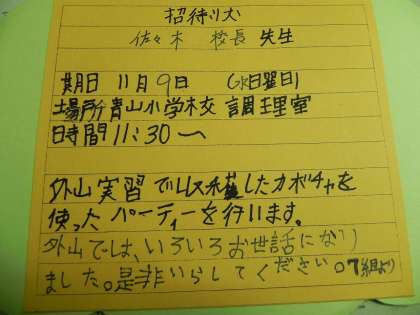 招待状
佐々木 校長 先生
期日 11月9日 (水日曜日)
場所 青山小学校 調理室
時間 11:30〜
外山実習で収穫したカボチャを
使ったパーティーを行います。
外山では、いろいろお世話になり
ました。是非いらしてください。7組より